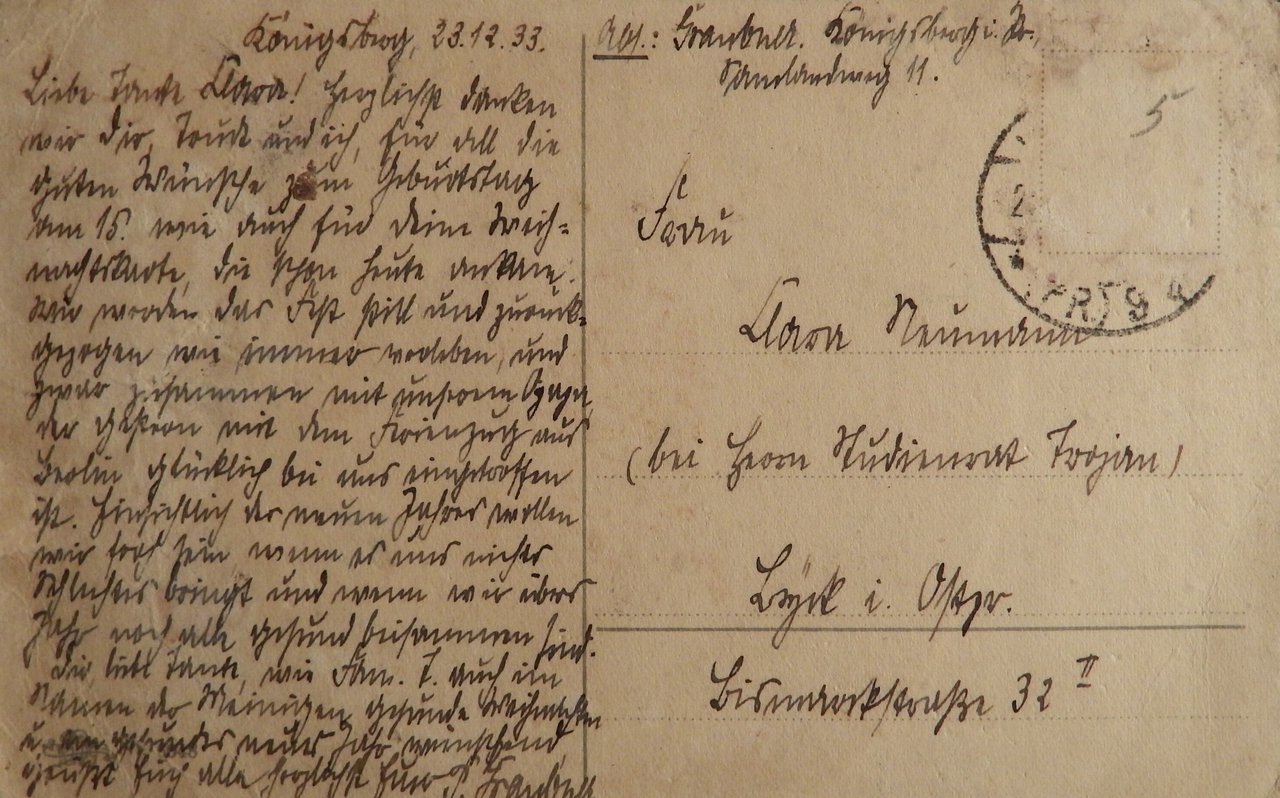 Königsberg, 23.12.33.
Liebe Tante Clara! Herzlichst danken
wir dir, Trudt und ich, für all die
guten Wünsche zum Geburtstag
am 15. wie auch für deine Weih=
nachtskarte, die schon heute ankam.
Wir werden das Fest still und zurück=
gezogen wie immer verleben, und
zwar zusammen mit unserem Opapa,
der gestern mit dem Ferienzug aus
Berlin glücklich bei uns eingetroffen
ist. Hinsichtlich des neuen Jahres wollen
wir froh sein, wenn es uns nichts
Schlechtes bringt und wenn wir übers
Jahr noch alle gesund beisammen sind.
Dir liebe Tante, wie Fam. T. auch im
Namen der Meinigen gesunde Weihnachten
u. ein gesundes neues Jahr wünschend,
grüßt Euch alle herzlichst Euer
Abs.: Graubner. Königsberg i. Pr.,
Samlandweg 11.
5
Frau
Clara Neumann
(bei Herrn Studienrat Trojan)
Lyck i. Ostpr.
Bismarckstraße 32 II
(PR) 9